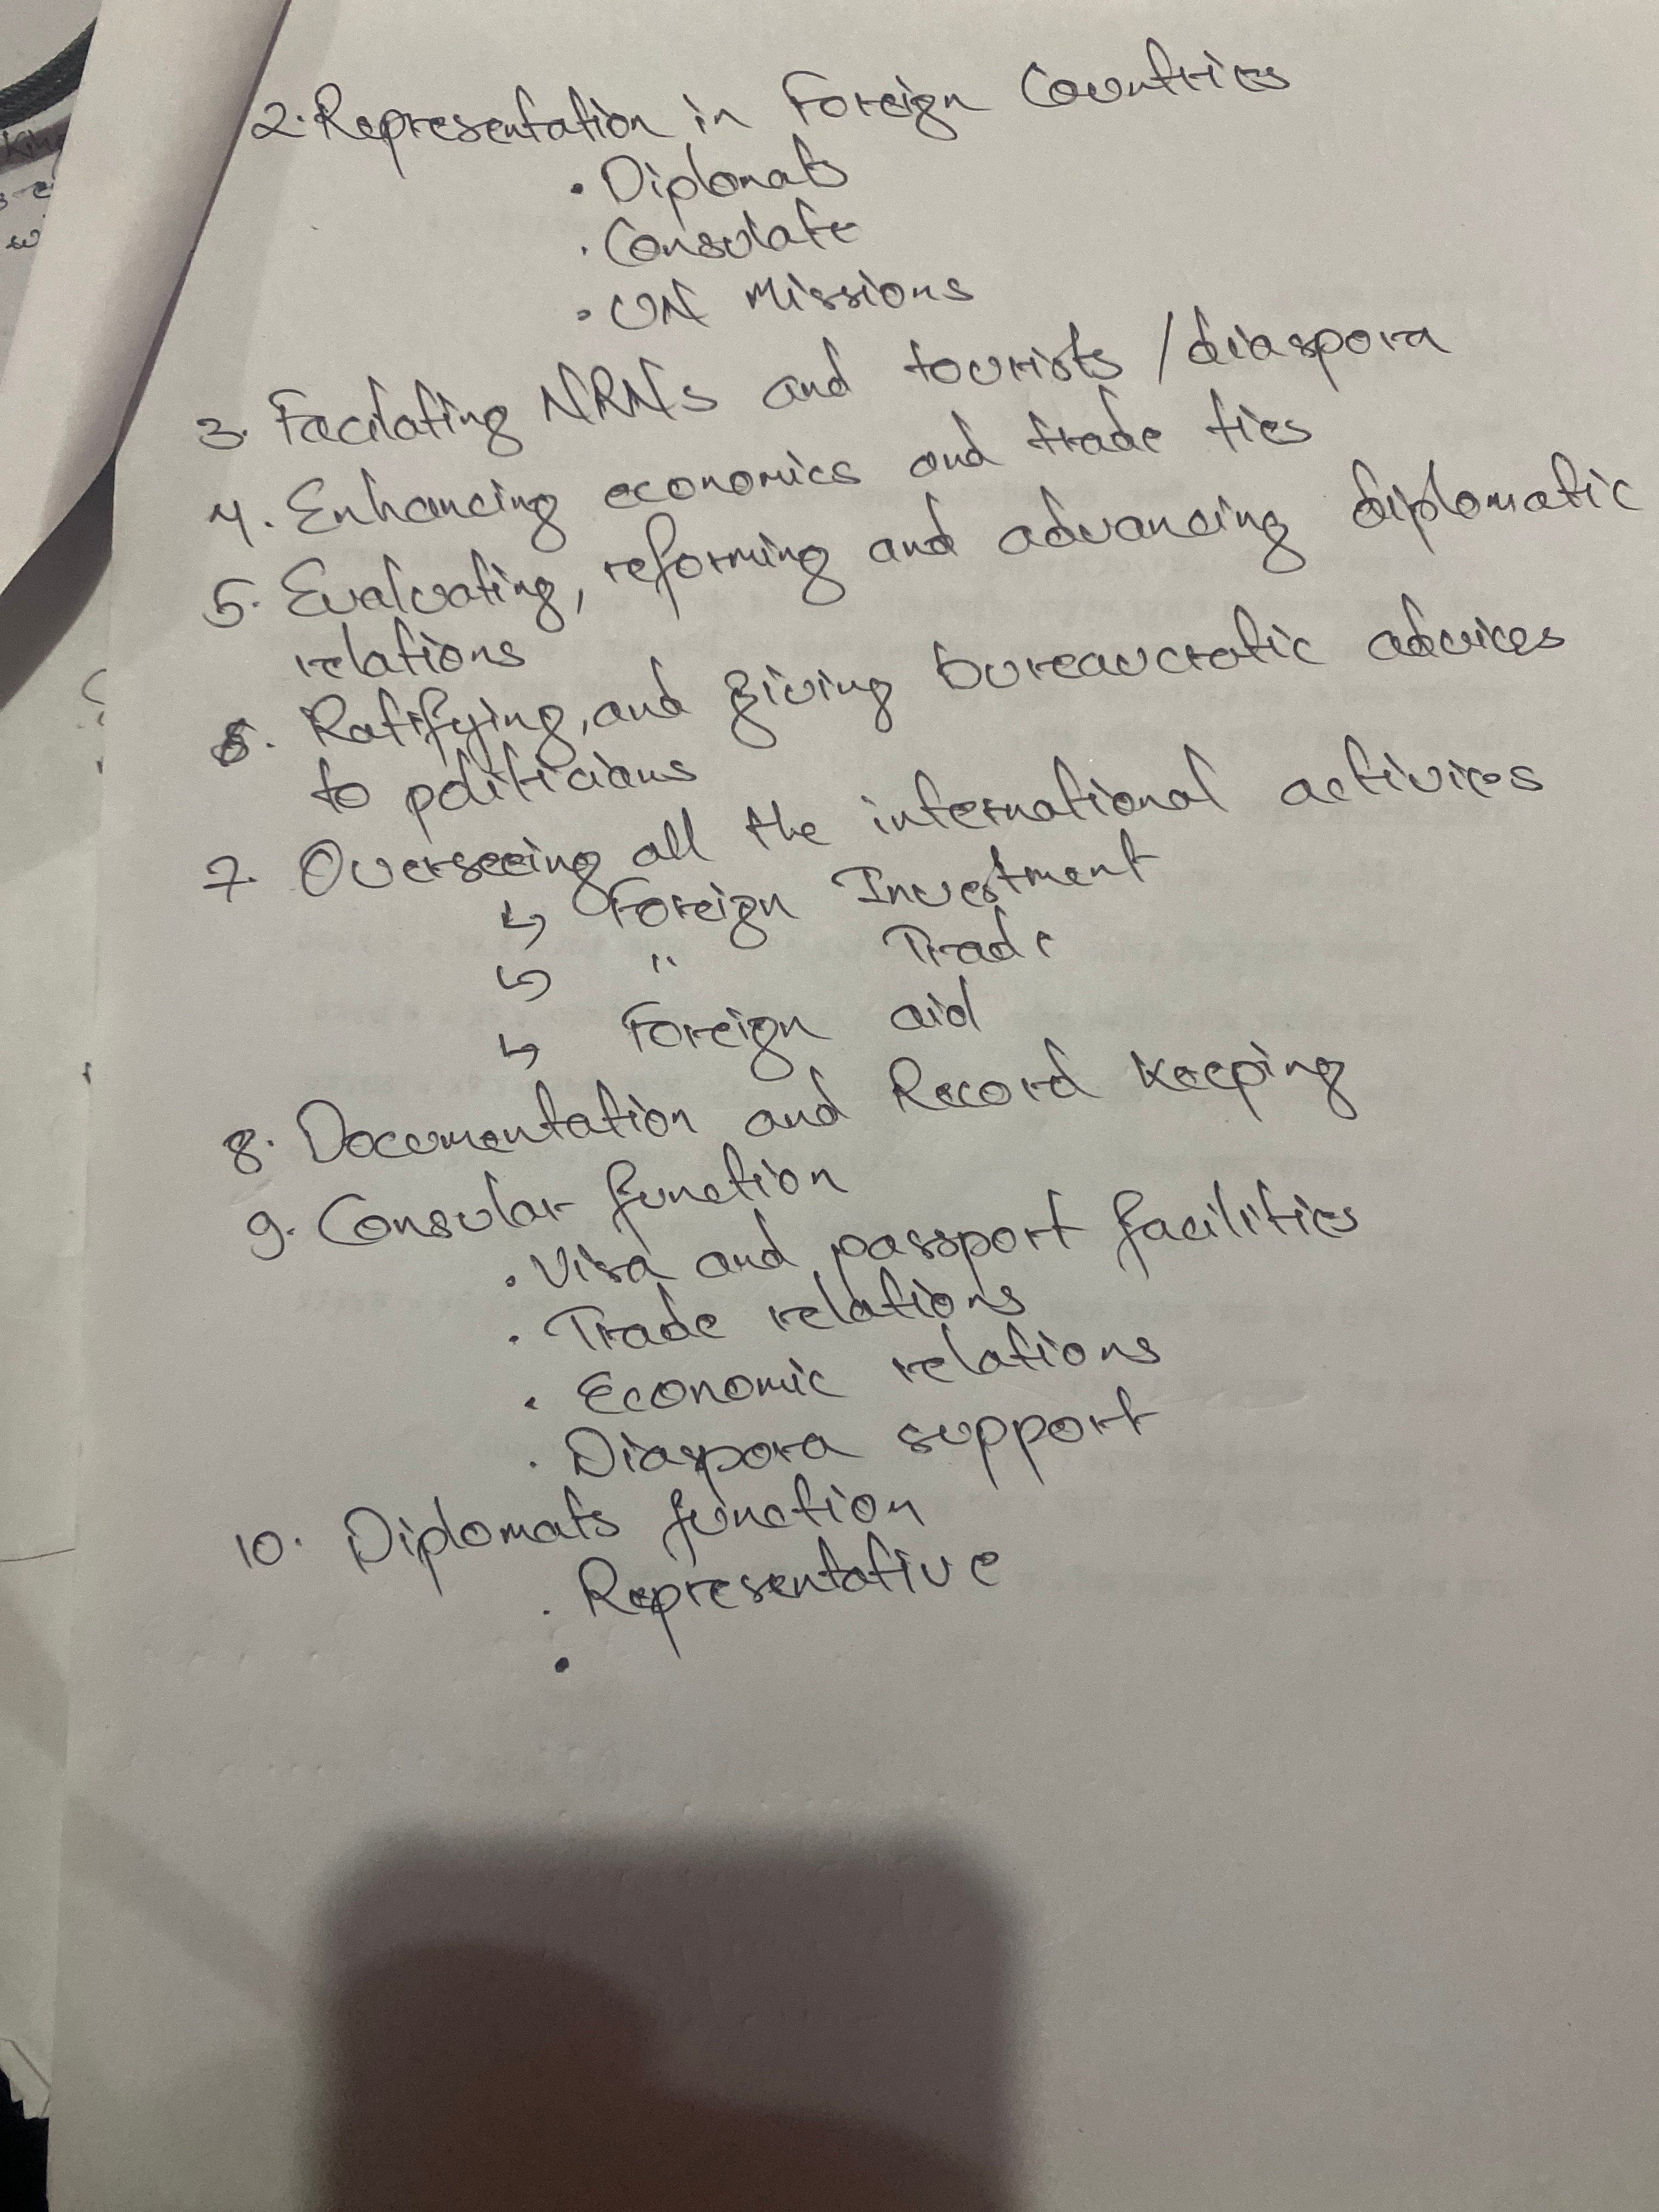 2. Representation in Foreign Countries
• Diplomats
• Consulate
• UN Missions
3. Facilating NRNs and tourists / diaspora
4. Enhancing economics and trade ties
5. Evaluating, reforming and advancing diplomatic
relations
6. Ratifying, and giving bureaucratic advices
to politicians
7. Overseeing all the international activices
↳ Foreign Investment
↳ " Trade
↳ Foreign aid
8. Documentation and Record keeping
9. Consular function
• Visa and passport facilities
• Trade relations
• Economic relations
• Diaspora support
10. Diplomats function
• Representative
•